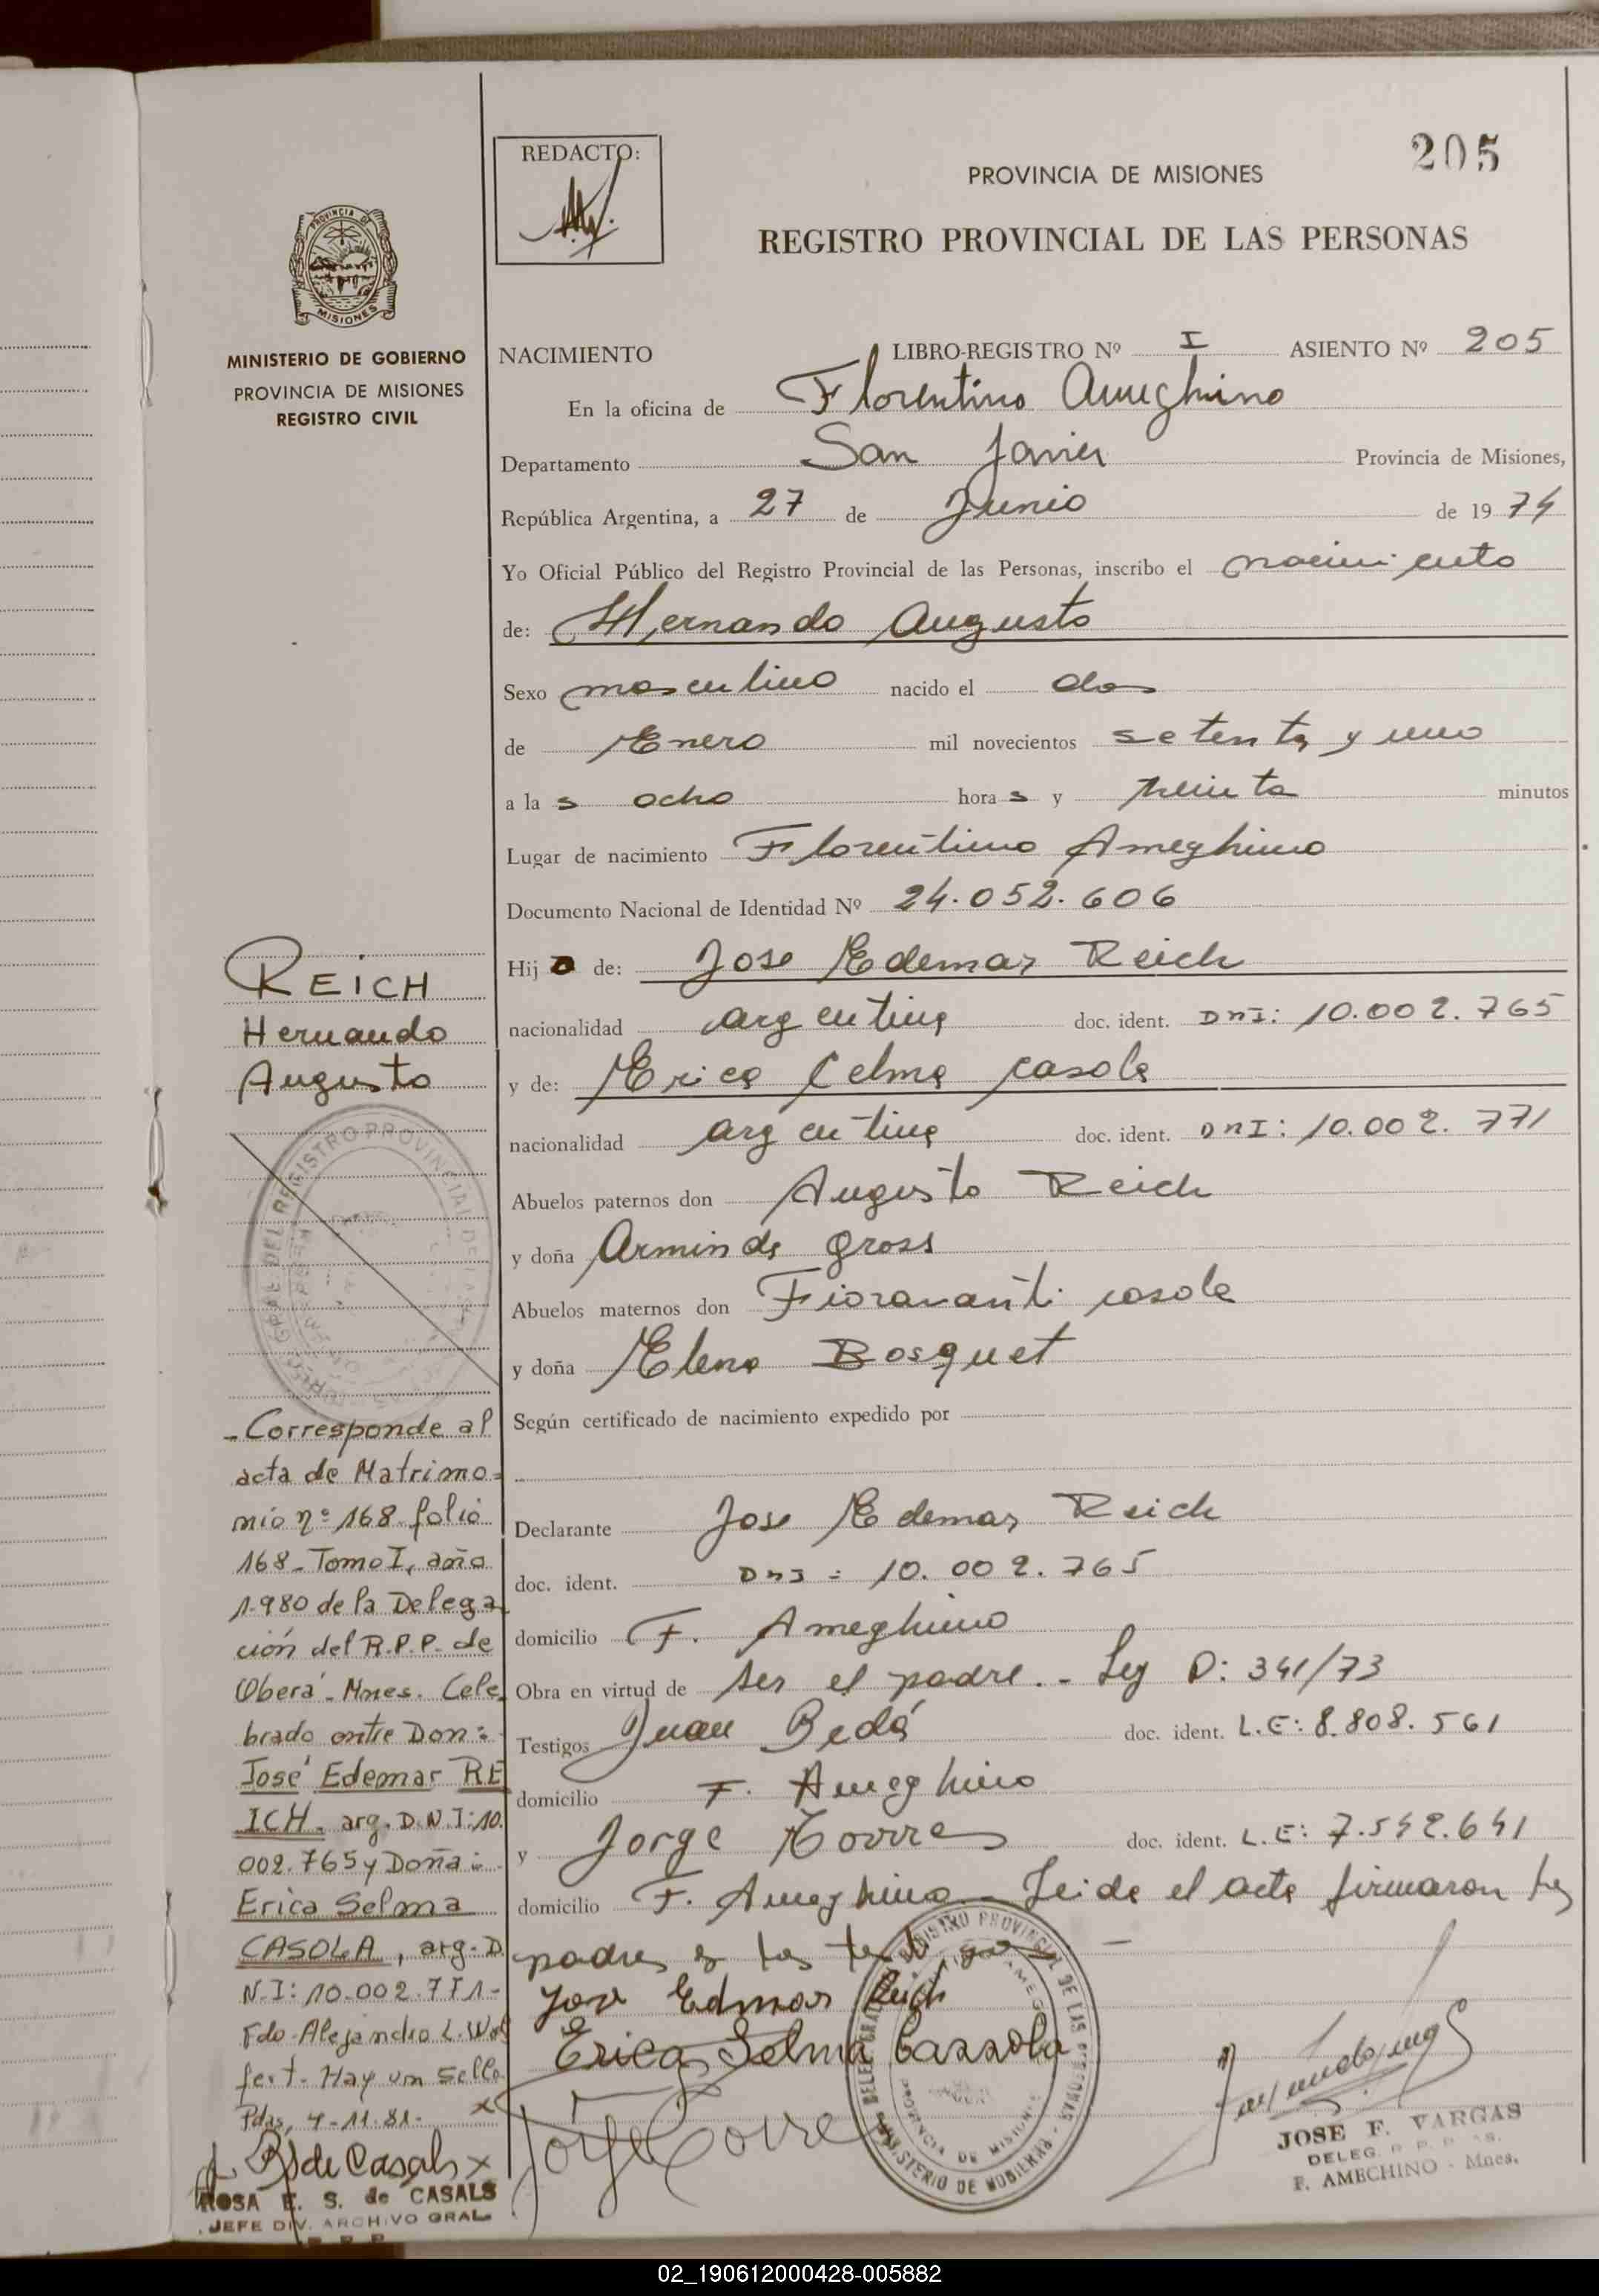 205
REDACTO:
PROVINCIA DE MISIONES
REGISTRO PROVINCIAL DE LAS PERSONAS
PROVINCIA DE
MISIONES
MINISTERIO DE GOBIERNO
PROVINCIA DE MISIONES
REGISTRO CIVIL
NACIMIENTO LIBRO-REGISTRO Nº I ASIENTO Nº 205
En la oficina de Florentino Ameghino
Departamento San Javier Provincia de Misiones,
República Argentina, a 27 de Junio de 1974
Yo Oficial Público del Registro Provincial de las Personas, inscribo el nacimiento
de: Hernando Augusto
Sexo masculino nacido el dos
de Enero mil novecientos setenta y uno
a las ocho horas y treinta minutos
Lugar de nacimiento Florentino Ameghino
Documento Nacional de Identidad Nº 24.052.606
Hijo de: Jose Edemar Reich
nacionalidad argentina doc. ident. DNI: 10.002.765
y de: Erica Celma Casola
nacionalidad argentina doc. ident. DNI: 10.002.771
Abuelos paternos don Augusto Reich
y doña Arminda Gross
Abuelos maternos don Fioravanti Casola
y doña Elena Bosquet
Según certificado de nacimiento expedido por
Declarante Jose Edemar Reich
doc. ident. DNI: 10.002.765
domicilio F. Ameghino
Obra en virtud de ser el padre. - Ley D: 341/73
Testigos Juan Bedá doc. ident. L.E: 8.808.561
domicilio F. Ameghino
y Jorge Torres doc. ident. L.E: 7.542.641
domicilio F. Ameghino - Leida el acta firmaron los
padres y los testigos
Jose Edmar Reich
Erica Selma Cazzola
Jorge Torres
JOSE F. VARGAS
F. AMECHINO - Mnes.
REICH
Hernando
Augusto
- Corresponde al
acta de Matrimo-
nio nº 168 folio
168 - Tomo I, año
1.980 de la Delega
ción del R.P.P. de
Oberá - Mnes. Cele
brado entre Don:
José Edemar RE
ICH, arg. D.N.I: 10.
002.765 y Doña:
Erica Selma
CASOLA, arg. D.
N.I: 10.002.771-
Fdo. Alejandro L. Wol
fert. Hay un sello
Pdas, 4-11-81-
R S de Casals
ROSA E. S. de CASALS
JEFE DIV. ARCHIVO GRAL.
R. P. P.
02_190612000428-005882